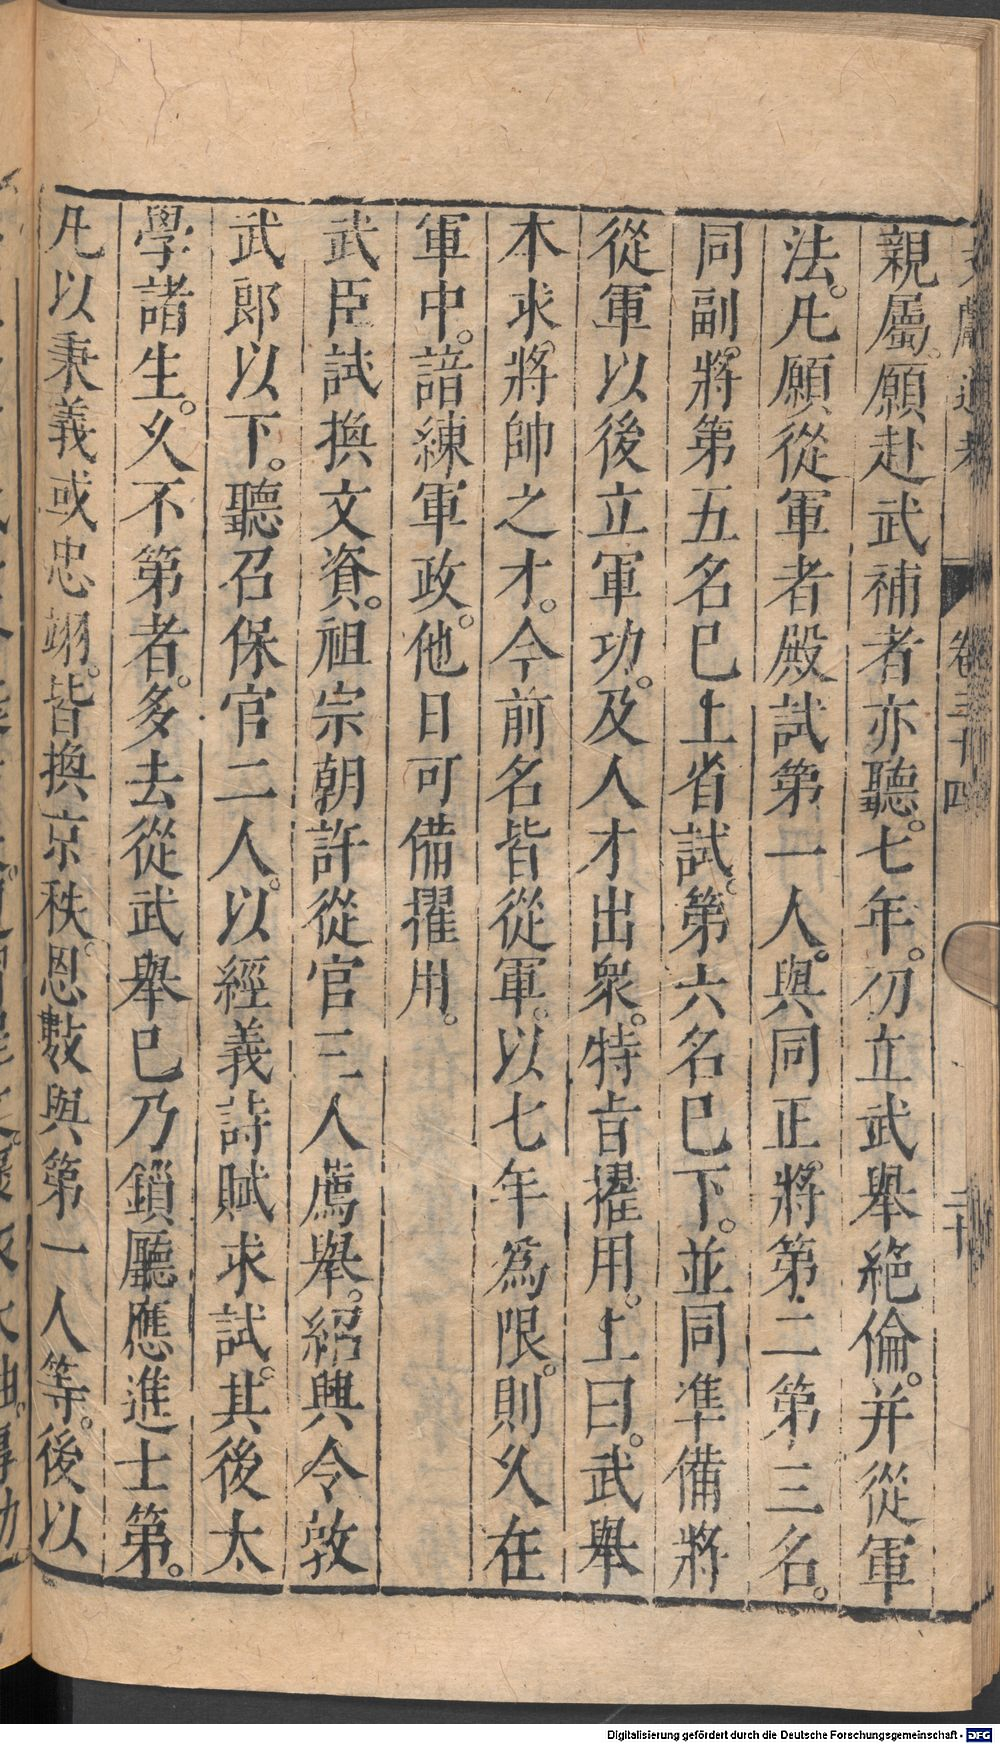 文獻通考 卷三十四 二十
親屬。願赴武補者亦聽。七年。初立武舉絕倫。并從軍
法。凡願從軍者殿試第一人。與同正將。第二第三名。
同副將。第五名已上省試。第六名已下。並同準備將
從軍以後立軍功。及人才出衆。特旨擢用。上曰。武舉
本求將帥之才。今前名皆從軍。以七年爲限。則久在
軍中。諳練軍政。他日可備擢用。
武臣試換文資。祖宗朝許從官三人薦舉。紹興令敦
武郎以下。聽召保官二人。以經義詩賦求試。其後太
學諸生。久不第者。多去從武舉已乃鎖廳應進士第。
凡以秉義或忠翊。皆換京秩。恩數與第一人等。後以
Digitalisierung gefördert durch die Deutsche Forschungsgemeinschaft - DFG